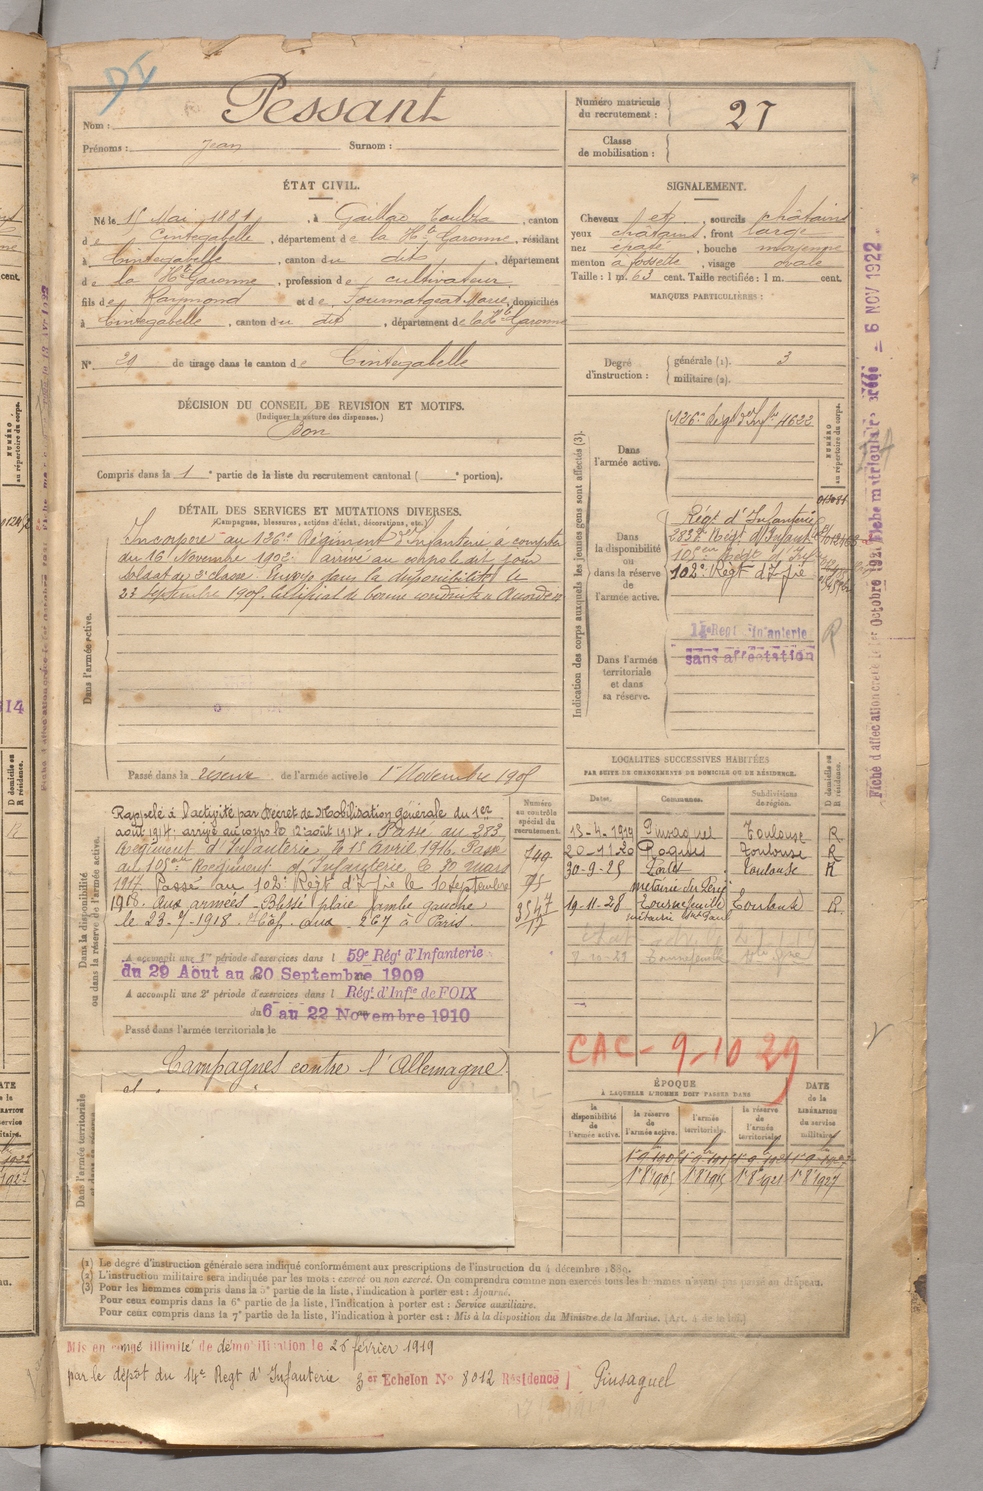 DI
Nom : Pessant
Prénoms : Jean Surnom :
Numéro matricule du recrutement : 27
Classe de mobilisation :
ÉTAT CIVIL.
Né le 15 Mai 1881, à Gaillac Toulza, canton
de Cintegabelle, département de la Hte Garonne, résidant
à Cintegabelle, canton du dit, département
de la Hte Garonne, profession de cultivateur
fils de Raymond et de Marie, domiciliés
à Cintegabelle, canton du dit, département de la Hte Garonne
N° 29 de tirage dans le canton de Cintegabelle
SIGNALEMENT.
Cheveux et sourcils châtains
yeux châtains, front large
nez épaté, bouche moyenne
menton à fossette, visage ovale
Taille : 1 m. 63 cent. Taille rectifiée : 1 m. cent.
MARQUES PARTICULIÈRES :
Degré d'instruction : générale (1). 3
militaire (2).
DÉCISION DU CONSEIL DE REVISION ET MOTIFS.
(Indiquer la nature des dispenses.)
Bon
Compris dans la 1e partie de la liste du recrutement cantonal ( e portion).
DÉTAIL DES SERVICES ET MUTATIONS DIVERSES.
(Campagnes, blessures, actions d'éclat, décorations, etc.)
Dans l'armée active.
Incorporé au 126e Régiment d'Infanterie à compter
du 16 Novembre 1902 arrivé au corps le dit jour
soldat de 2e classe. Envoyé dans la disponibilité le
23 septembre 1905. Certificat de bonne conduite Accordé
Passé dans la réserve de l'armée active le 1er Novembre 1905
Indication des corps auxquels les jeunes gens sont affectés (3).
Dans l'armée active.
126e Régt d'Infie 4622
NUMÉRO au répertoire du corps.
Dans la disponibilité ou dans la réserve de l'armée active.
Régt d'Infanterie
283e Régt d'Infant
102e Régt d'Infie
Dans l'armée territoriale et dans sa réserve.
14e Regt Infanterie
sans affectation
Fiche d'affectation créée le 1er Octobre 1921 Fiche matriculaire créée - 6 NOV 1922
Dans la disponibilité ou dans la réserve de l'armée active.
Rappelé à l'activité par Décret de Mobilisation générale du 1er
août 1914; arrivé au corps le 12 août 1914. Passé au 283
Régiment d'Infanterie le 1er Avril 1916 Passé
au Régiment d'Infanterie le 30 mars
1917. Passé au 102e Régt d'Infie le 10 septembre
1918. Aux armées - Blessé plaie jambe gauche
le 23-7-1918. Hôp. aux. 267 à Paris.
Numéro au contrôle spécial du recrutement.
749
A accompli une 1re période d'exercices dans l 59e Régt d'Infanterie
du 29 Août au 20 Septembre 1909
A accompli une 2e période d'exercices dans l Régt d'Infie de FOIX
du 6 au 22 Novembre 1910
Passé dans l'armée territoriale le
LOCALITÉS SUCCESSIVES HABITÉES
PAR SUITE DE CHANGEMENTS DE DOMICILE OU DE RÉSIDENCE.
Dates. Communes. Subdivisions de région. D domicile ou R résidence.
13-4-1919 Pinsaguel Toulouse R
20-11-20 Roques Toulouse R
30-9-25 Toulouse R
19-11-28 Tournefeuille Toulouse R
8-10-29 Tournefeuille
CAC - 9-10 29
Campagnes contre l'Allemagne
Dans l'armée territoriale
ÉPOQUE
À LAQUELLE L'HOMME DOIT PASSER DANS
la disponibilité de l'armée active. la réserve de l'armée active. l'armée territoriale. la réserve de l'armée territoriale. DATE de la LIBÉRATION du service militaire.
1er 8bre 1905 1er 8bre 1915 1er 8bre 1921 1er 8bre 1927
(1) Le degré d'instruction générale sera indiqué conformément aux prescriptions de l'instruction du 4 décembre 1889.
(2) L'instruction militaire sera indiquée par les mots : exercé ou non exercé. On comprendra comme non exercés tous les hommes n'ayant pas passé au drapeau.
(3) Pour les hommes compris dans la 5e partie de la liste, l'indication à porter est : Ajourné.
Pour ceux compris dans la 6e partie de la liste, l'indication à porter est : Service auxiliaire.
Pour ceux compris dans la 7e partie de la liste, l'indication à porter est : Mis à la disposition du Ministre de la Marine. (Art. 4 de la loi.)
Mis en congé illimité de démobilisation le 26 février 1919
par le dépôt du 14e Regt d'Infanterie 3 er Echelon No 8012 Résidence Pinsaguel